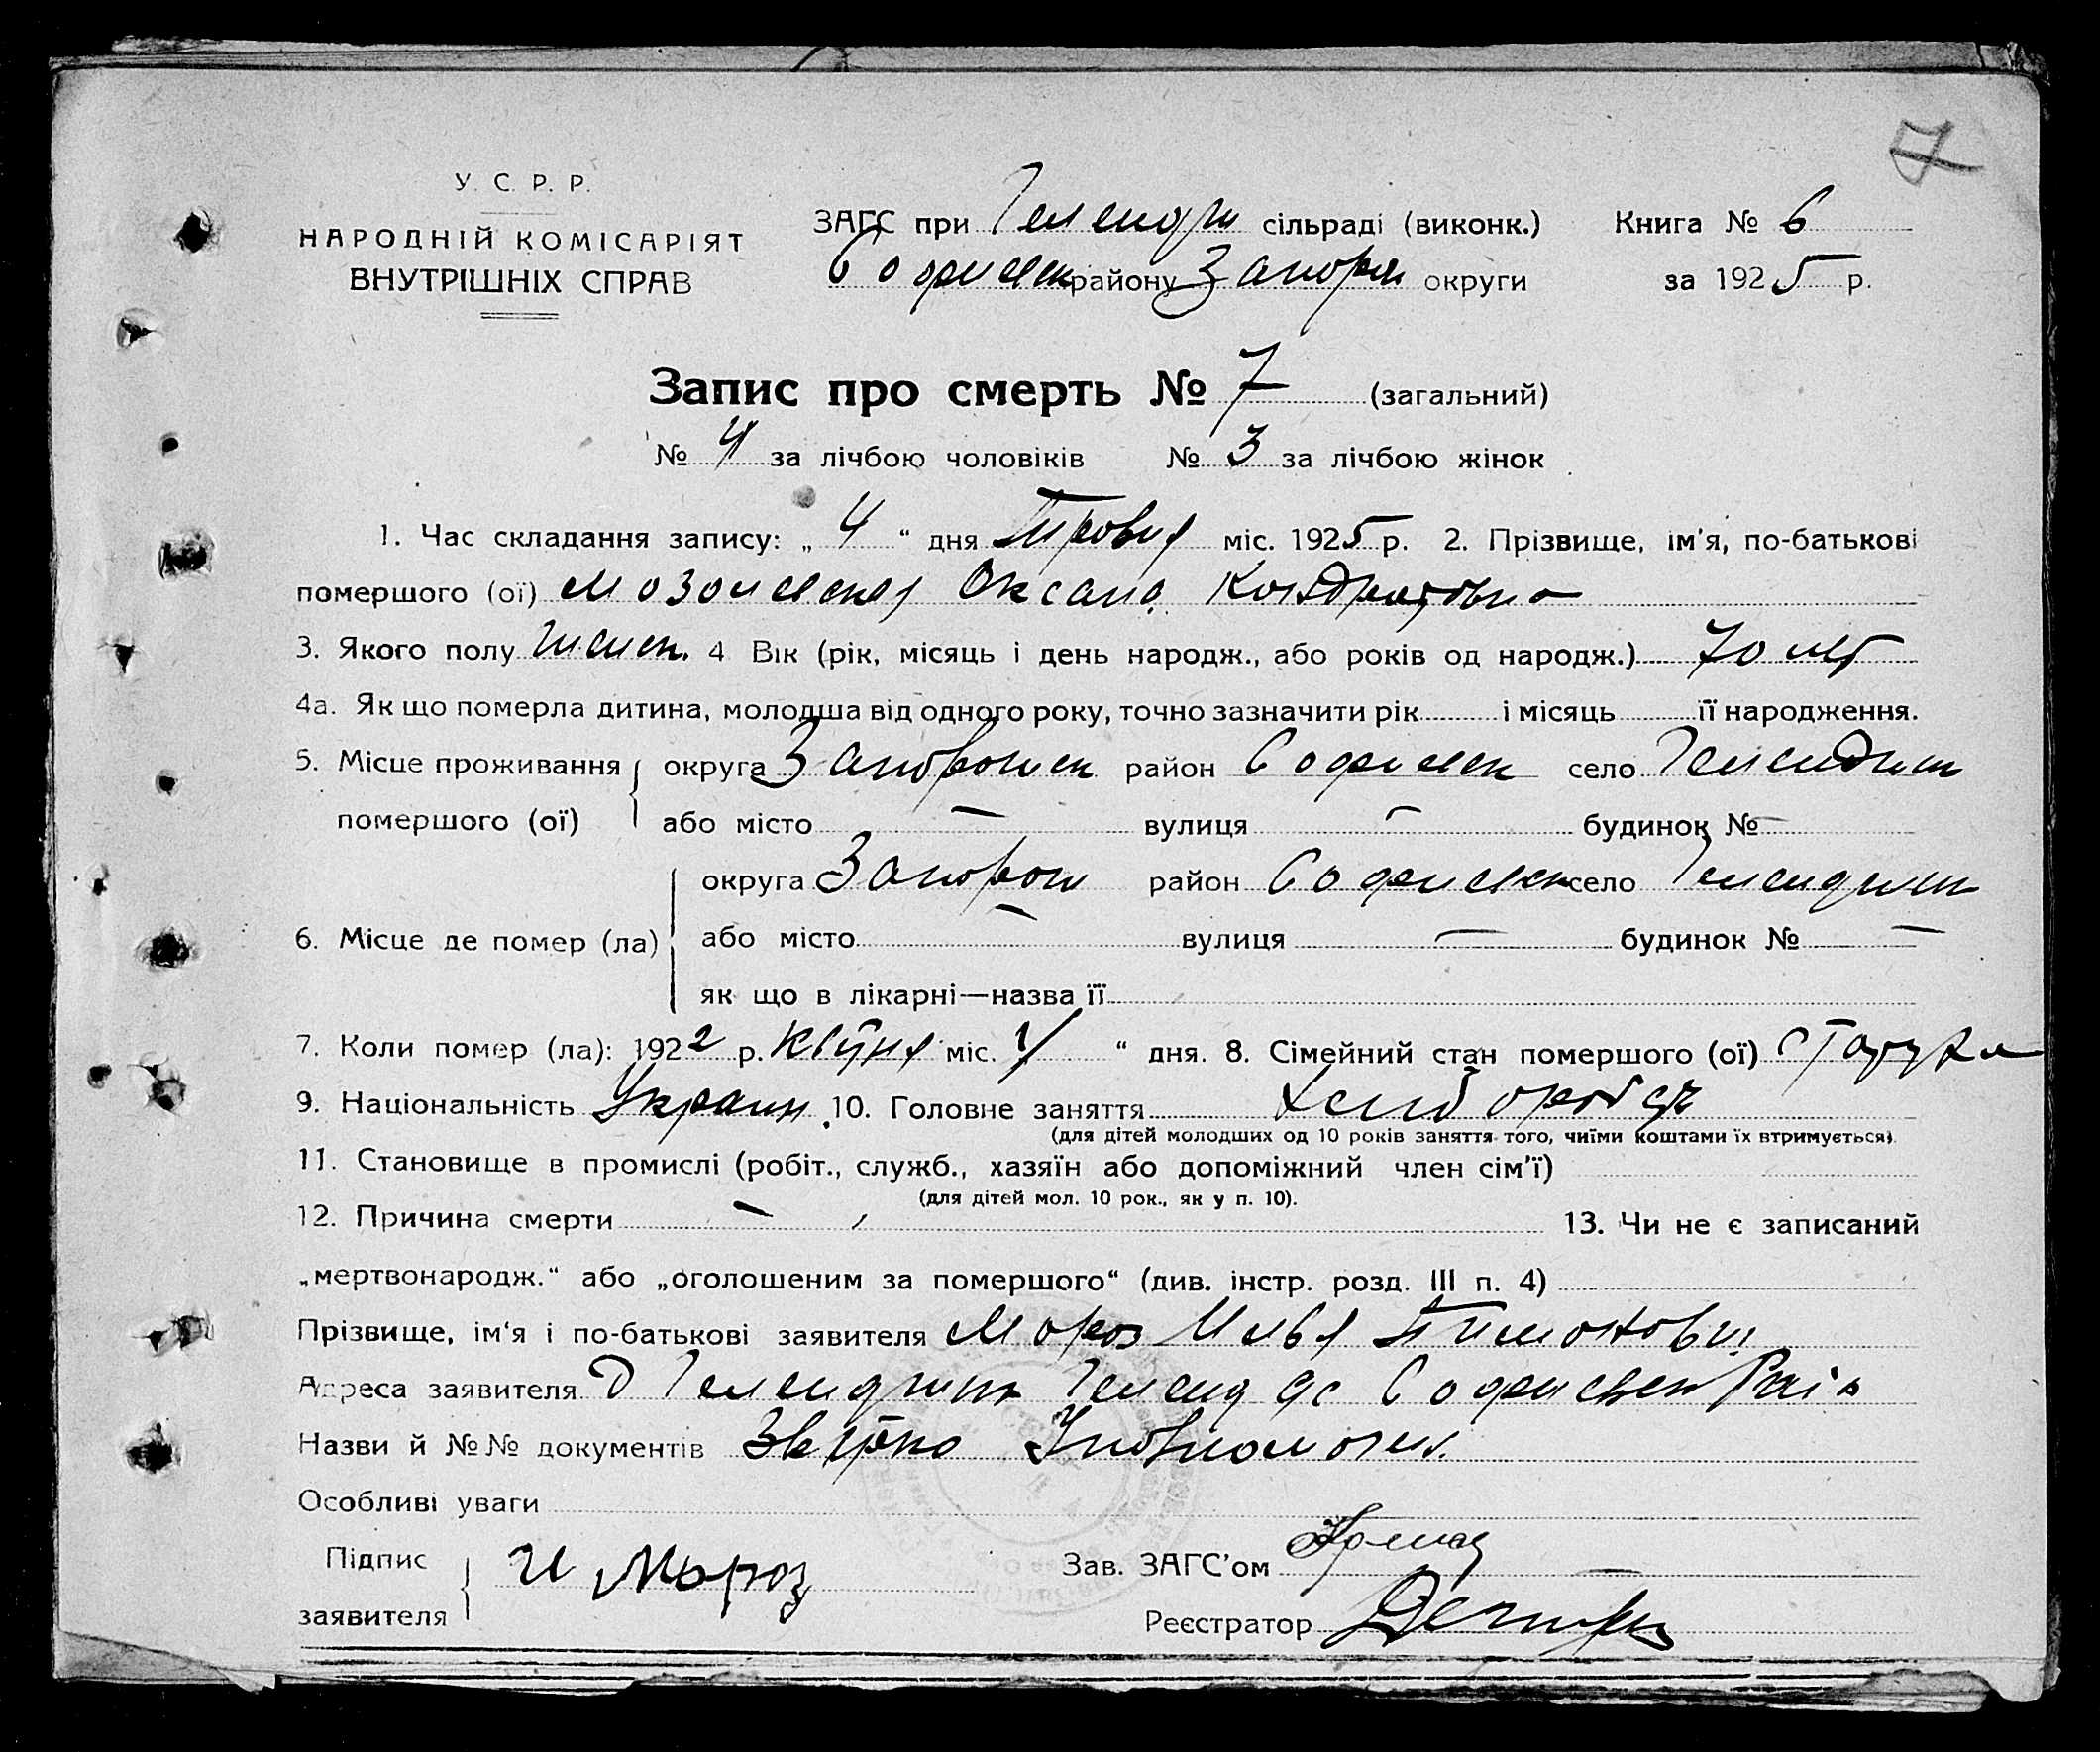 7
У. С. Р. Р.
НАРОДНІЙ КОМІСАРІЯТ
ВНУТРІШНІХ СПРАВ
ЗАГС при сільраді (виконк.) Книга № 6
Софиевск району Запорж округи за 1925 р.
Запис про смерть № 7 (загальний)
№ 4 за лічбою чоловіків № 3 за лічбою жінок
1. Час складання запису: „ 4 “ дня Травня міс. 1925 р. 2. Прізвище, ім'я, по-батькові
помершого (ої) Оксана Кондратовна
3. Якого полу 4 Вік (рік, місяць і день народж., або років од народж.) 70 лет
4а. Як що померла дитина, молодша від одного року, точно зазначити рік і місяць її народження.
5. Місце проживання округа район Софиевск село
помершого (ої) або місто — вулиця — будинок № —
округа Запорож район Софиевск село
6. Місце де помер (ла) або місто — вулиця — будинок № —
як що в лікарні—назва її
7. Коли помер (ла): 1922 р. міс. “ дня. 8. Сімейний стан помершого (ої) старуха
9. Національність Украин. 10. Головне заняття хлебороб
(для дітей молодших од 10 років заняття того, чиїми коштами їх втримується)
11. Становище в промислі (робіт., служб., хазяїн або допоміжний член сім'ї)
(для дітей мол. 10 рок., як у п. 10).
12. Причина смерти — 13. Чи не є записаний
„мертвонародж.“ або „оголошеним за помершого“ (див. інстр. розд. III п. 4)
Прізвище, ім'я і по-батькові заявителя Мороз Илья
Адреса заявителя Софиевск Раіо
Назви й №№ документів
Особливі уваги
Підпис
заявителя И Мороз
Зав. ЗАГС'ом
Реєстратор